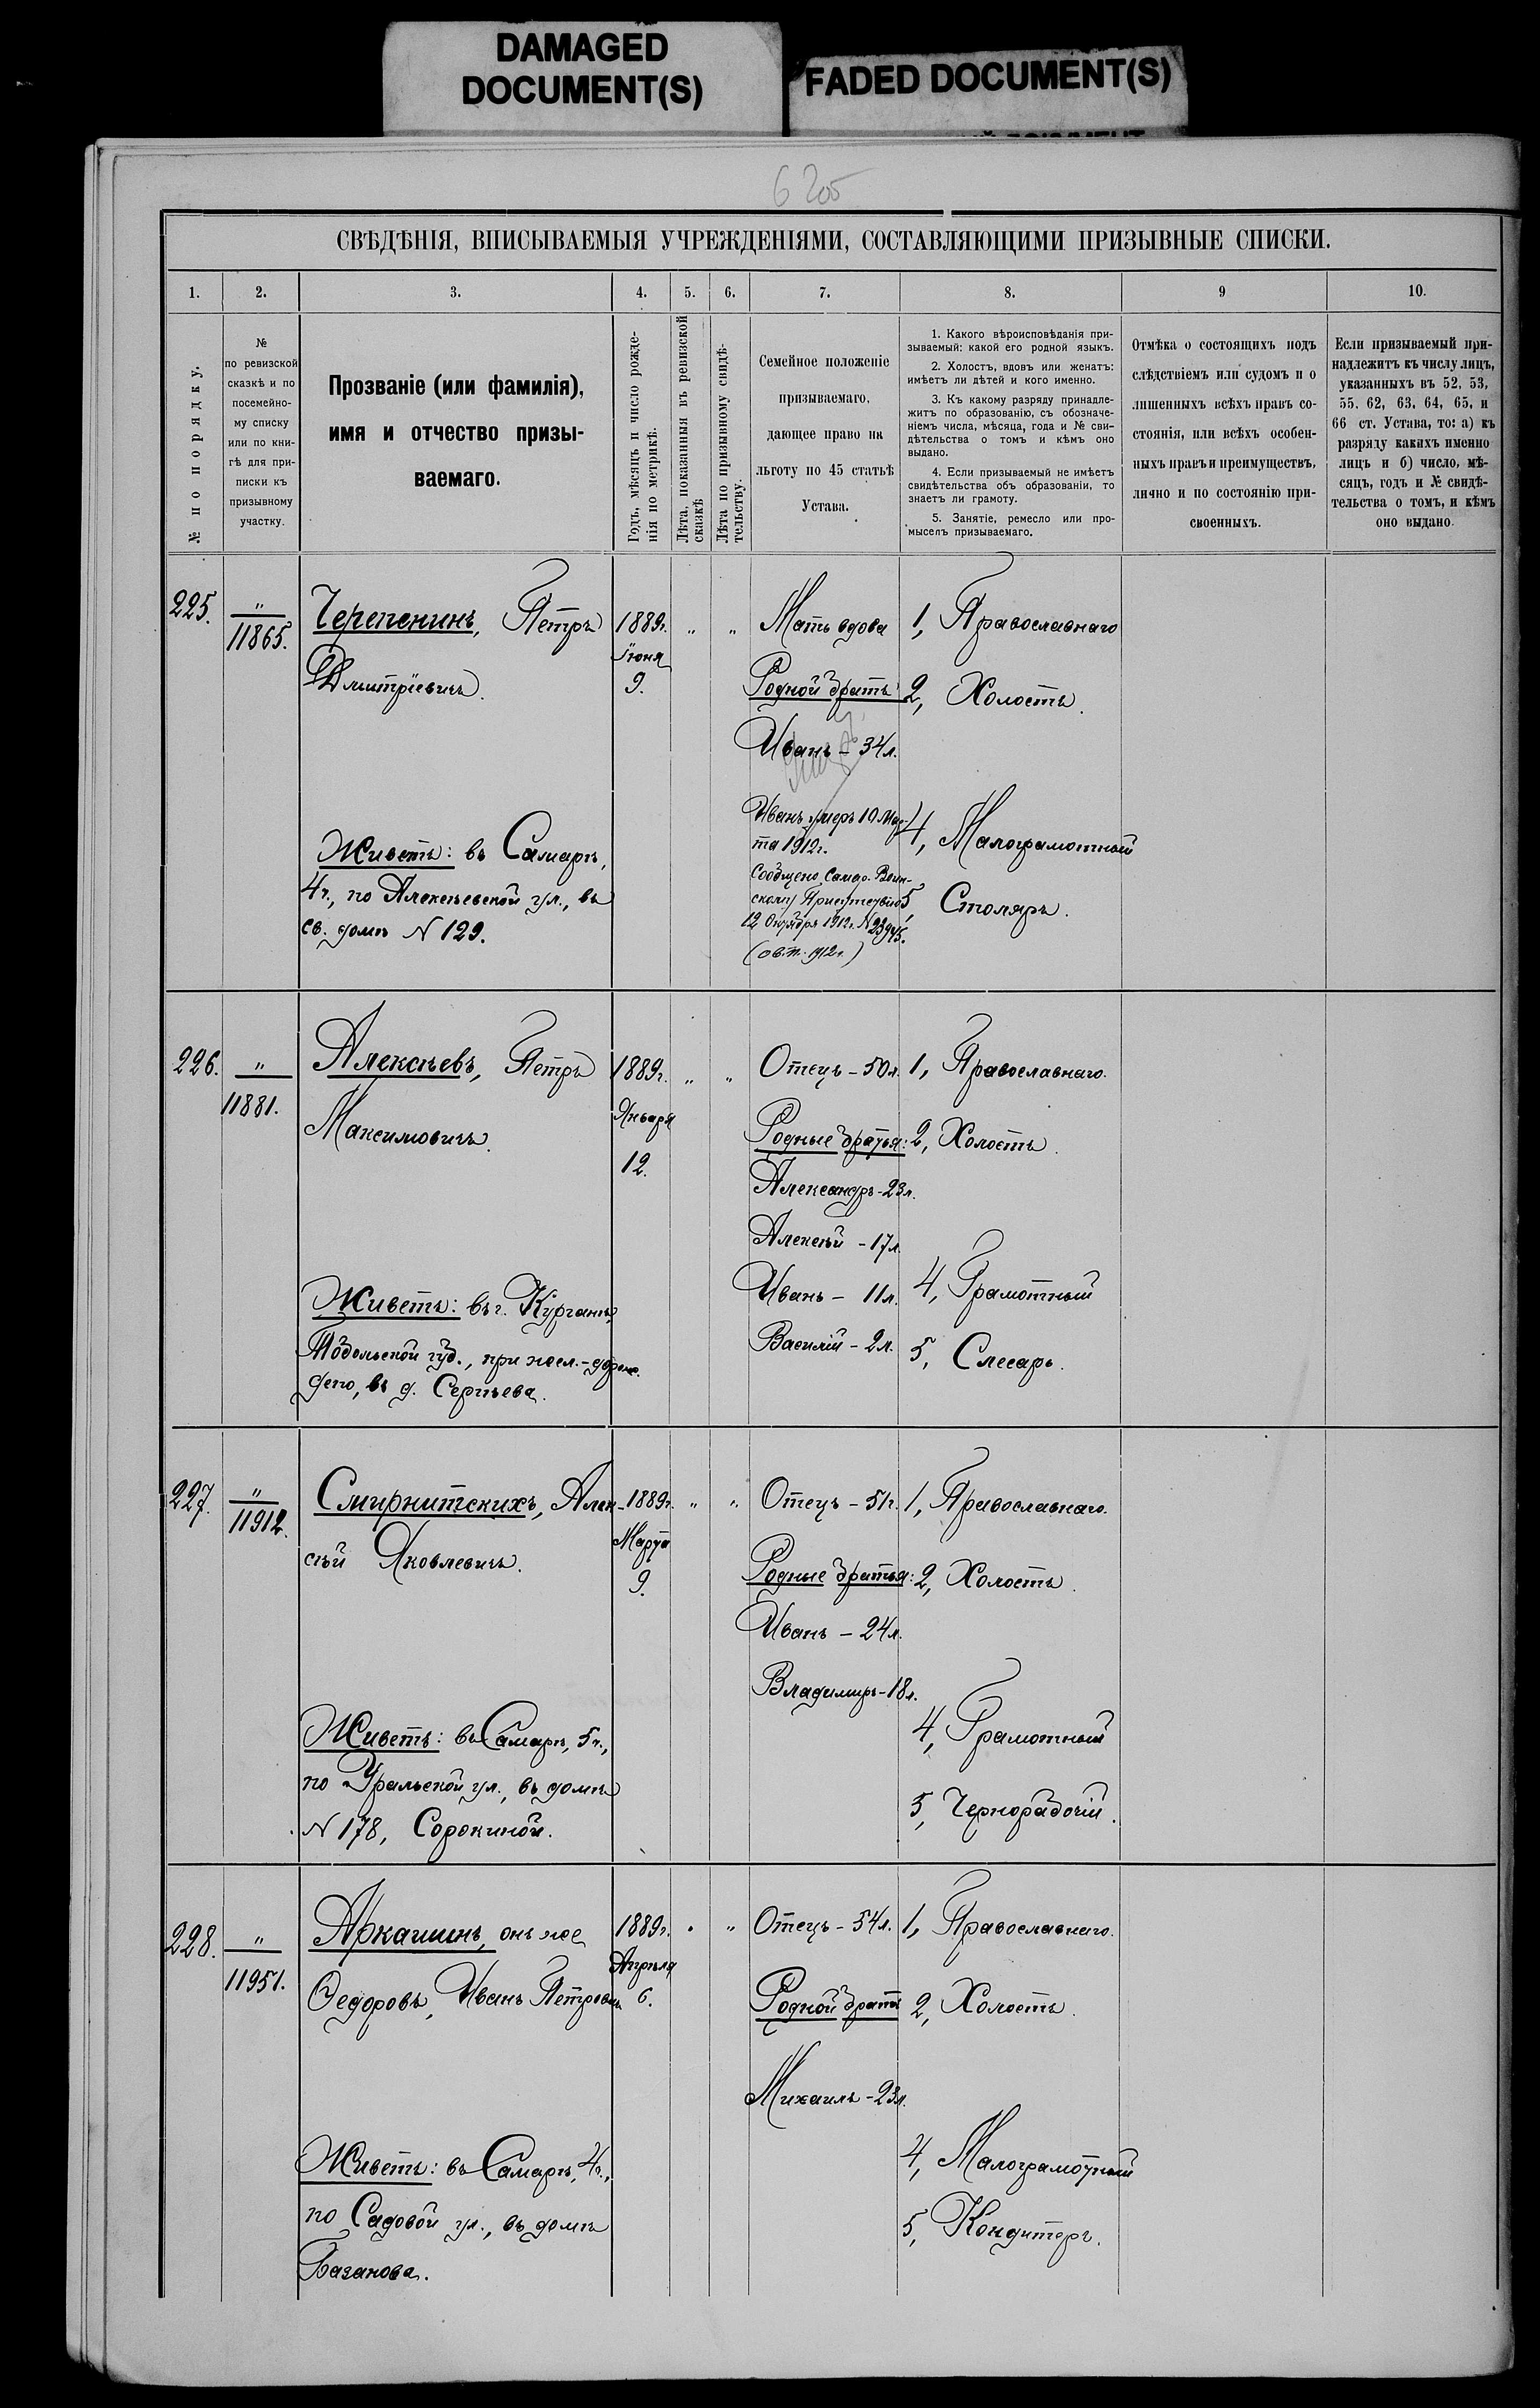 DAMAGED
DOCUMENT(S)
FADED DOCUMENT(S)
СВѢДѢНІЯ, ВПИСЫВАЕМЫЯ УЧРЕЖДЕНІЯМИ, СОСТАВЛЯЮЩИМИ ПРИЗЫВНЫЕ СПИСКИ.
1. 2. 3. 4. 5. 6. 7. 8. 9 10.
№ по порядку.
№
по ревизской
сказкѣ и по
посемейно-
му списку
или по кни-
гѣ для при-
писки къ
призывному
участку.
Прозваніе (или фамилія),
имя и отчество призы-
ваемаго.
Годъ, мѣсяцъ и число рожде-
нія по метрикѣ.
Лѣта, показанныя въ ревизской
сказкѣ
Лѣта по призывному свидѣ-
тельству.
Семейное положеніе
призываемаго,
дающее право на
льготу по 45 статьѣ
Устава.
1. Какого вѣроисповѣданія при-
зываемый: какой его родной языкъ.
2. Холостъ, вдовъ или женатъ:
имѣетъ ли дѣтей и кого именно.
3. Къ какому разряду принадле-
житъ по образованію, съ обозначе-
ніемъ числа, мѣсяца, года и № сви-
дѣтельства о томъ и кѣмъ оно
выдано.
4. Если призываемый не имѣетъ
свидѣтельства объ образованіи, то
знаетъ ли грамоту.
5. Занятіе, ремесло или про-
мыселъ призываемаго.
Отмѣка о состоящихъ подъ
слѣдствіемъ или судомъ и о
лишенныхъ всѣхъ правъ со-
стоянія, или всѣхъ особен-
ныхъ правъ и преимуществъ,
лично и по состоянію при-
своенныхъ.
Если призываемый при-
надлежитъ къ числу лицъ,
указанныхъ въ 52, 53,
55, 62, 63, 64, 65, и
66 ст. Устава, то: а) къ
разряду какихъ именно
лицъ и б) число, мѣ-
сяцъ, годъ и № свидѣ-
тельства о томъ, и кѣмъ
оно выдано.
225.
"
11865.
Черепенинъ, Петръ
Дмитріевичъ.
Живетъ: въ Самарѣ,
4ч., по Алексѣевской ул., въ
св. домѣ № 129.
1889г.
Іюня
9.
" "
Мать вдова
Родной братъ
Иванъ – 34л.
Иванъ умеръ 10 Мар-
та 1912г.
Сообщено Самар. Воин-
скому Присутствію
12 Октября 1912г. № 23945.
1, Православнаго
2, Холостъ.
4, Малограмотный
5, Столяръ.
226.
"
11881.
Алексѣевъ, Петръ
Максимовичъ.
Живетъ: въ г. Курганѣ,
Тобольской губ., при жел.-дорож.
депо, въ д. Сергѣева.
1889г.
Января
12.
" "
Отецъ – 50л.
Родные братья:
Александръ – 23л.
Алексѣй – 17л.
Иванъ – 11л.
Василій – 2л.
1, Православнаго.
2, Холостъ.
4, Грамотный
5, Слесарь.
227.
"
11912.
Смирнитскихъ, Алек-
сѣй Яковлевичъ.
Живетъ: въ Самарѣ, 5ч.,
по Уральской ул., въ домѣ
№ 178, Сорокиной.
1889г.
Марта
9.
" "
Отецъ – 51г.
Родные братья:
Иванъ – 24л.
Владимиръ – 18л.
1, Православнаго.
2, Холостъ.
4, Грамотный
5, Чернорабочій.
228.
"
11951.
Аркашинъ, онъ же
Федоровъ, Иванъ Петровичъ
Живетъ: въ Самарѣ, 4ч.,
по Садовой ул., въ домѣ
Базанова.
1889г.
Апрѣля
6.
" "
Отецъ – 54л.
Родной братъ
Михаилъ – 23л.
1, Православнаго.
2, Холостъ.
4, Малограмотный
5, Кондитеръ.